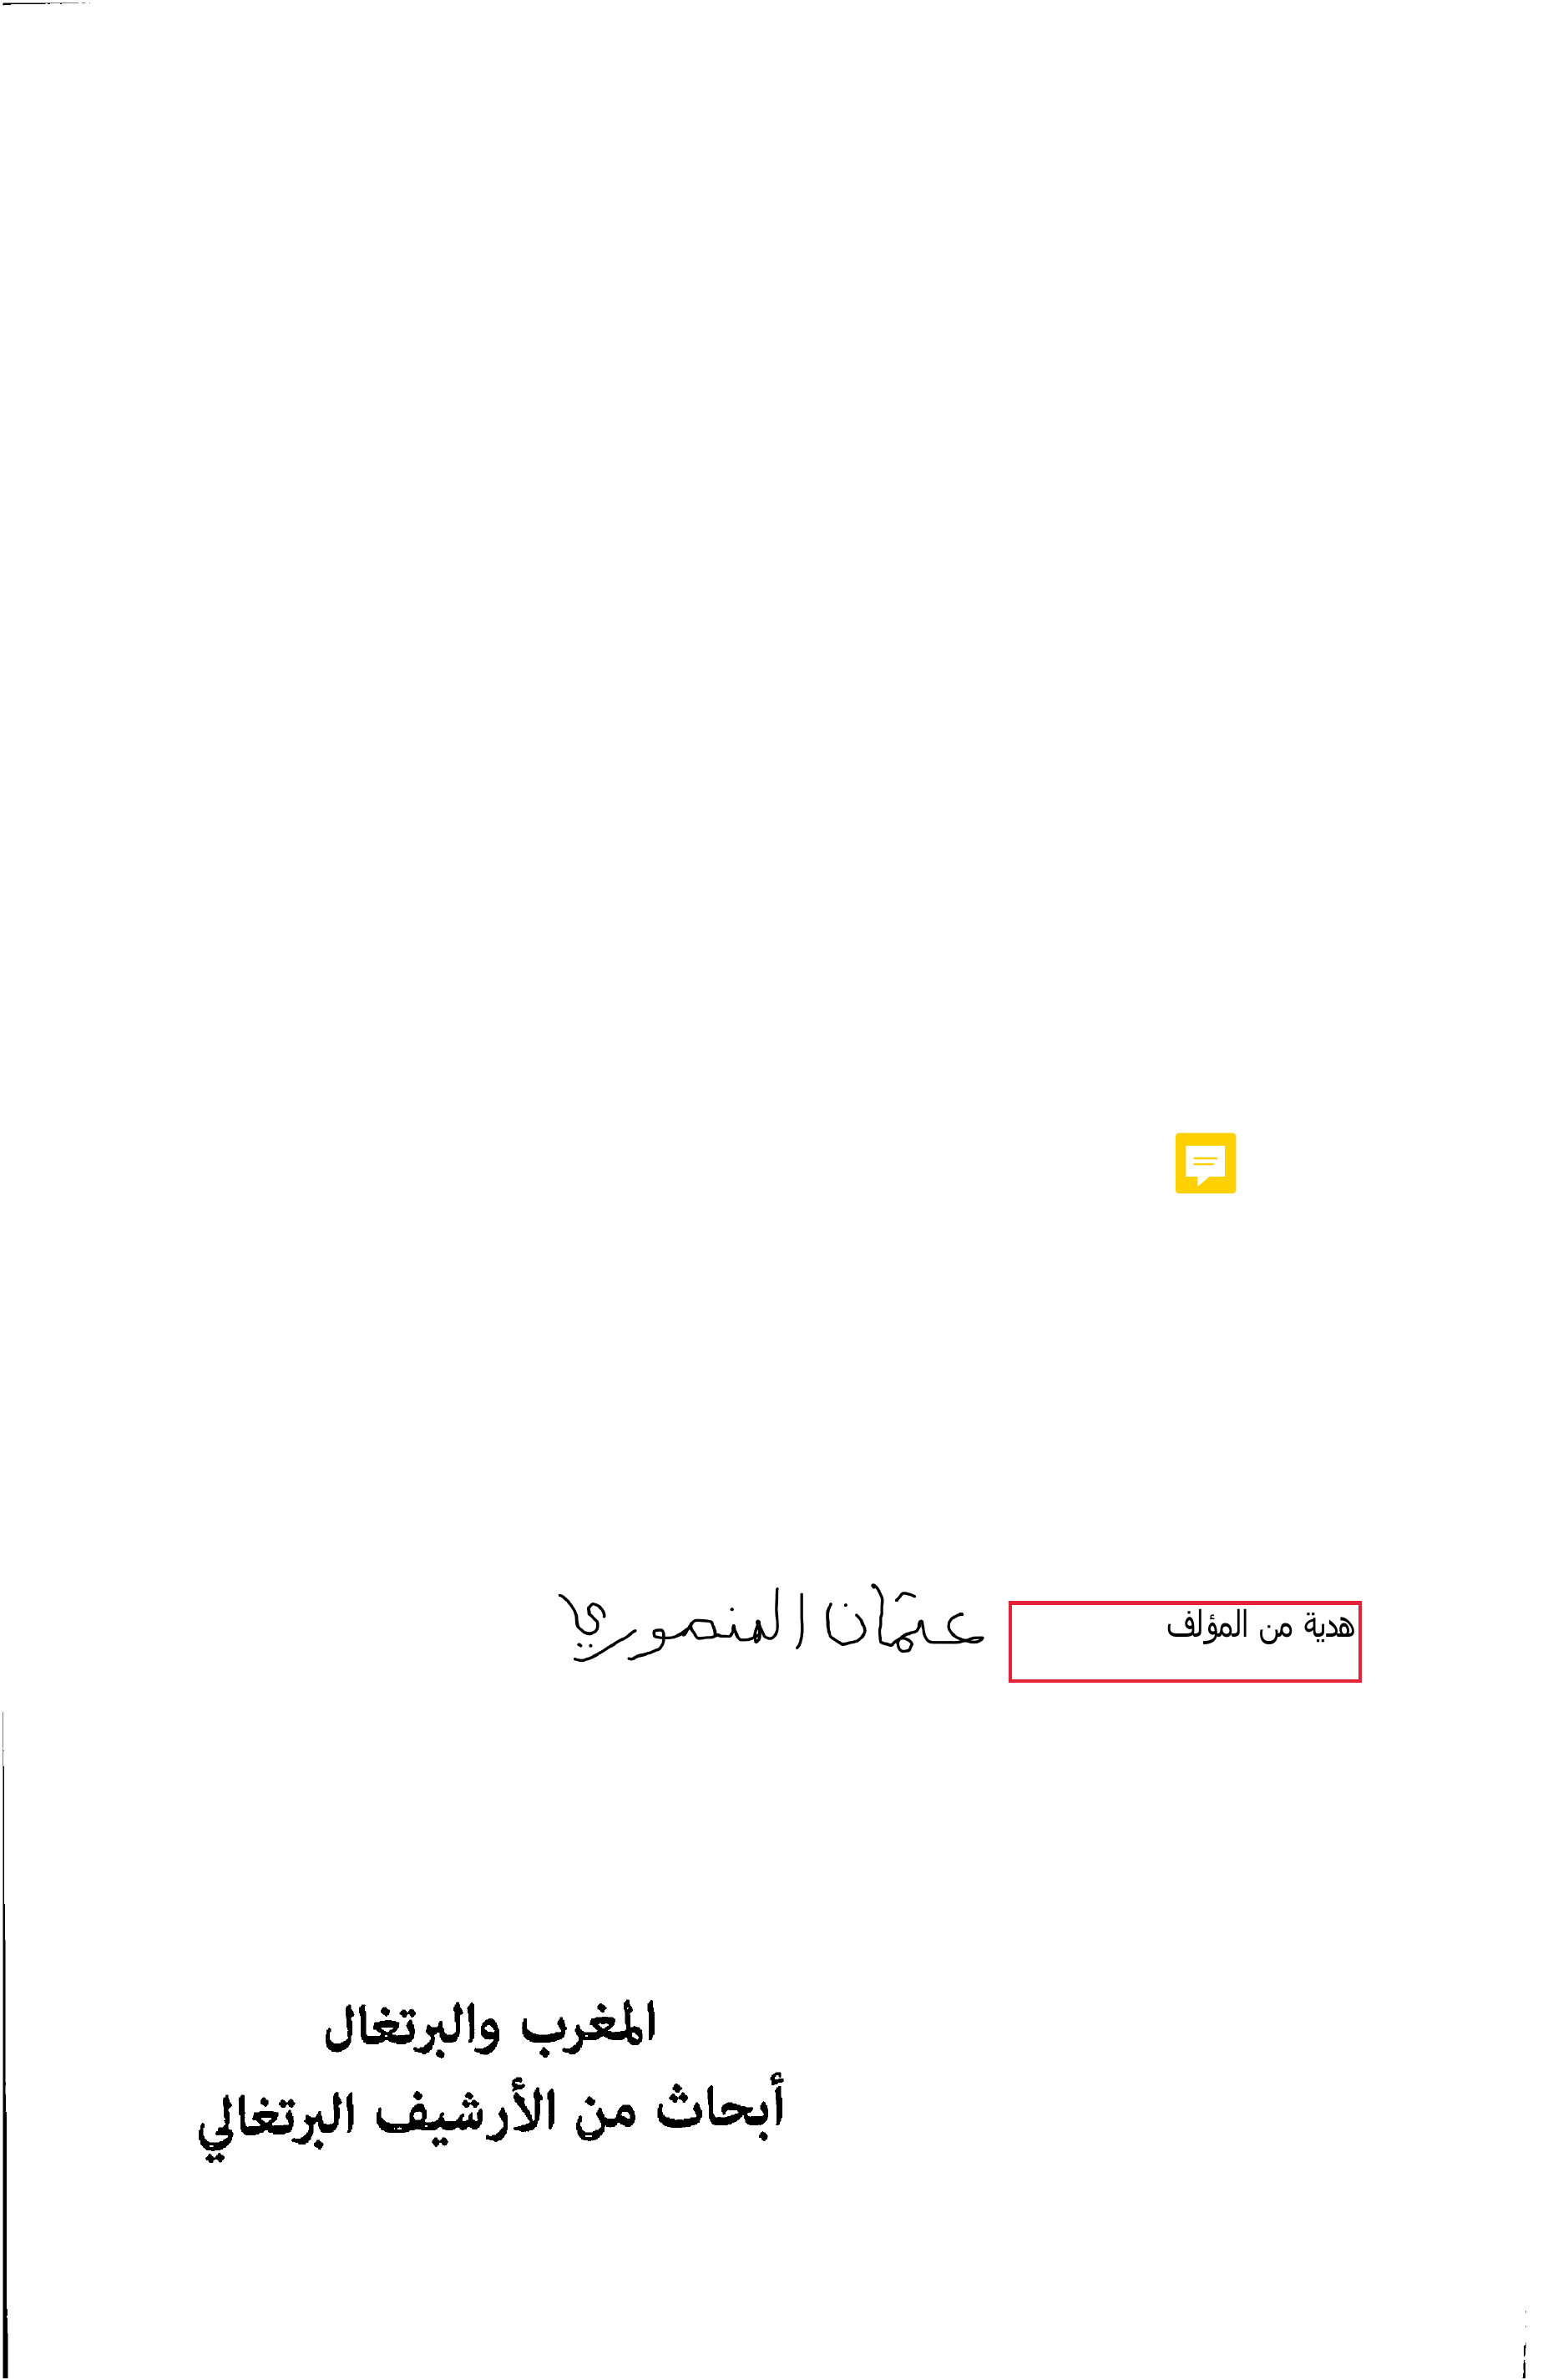 هدية من المؤلف عثمان المنصوري
المغرب والبرتغال
أبحاث من الأرشيف البرتغالي